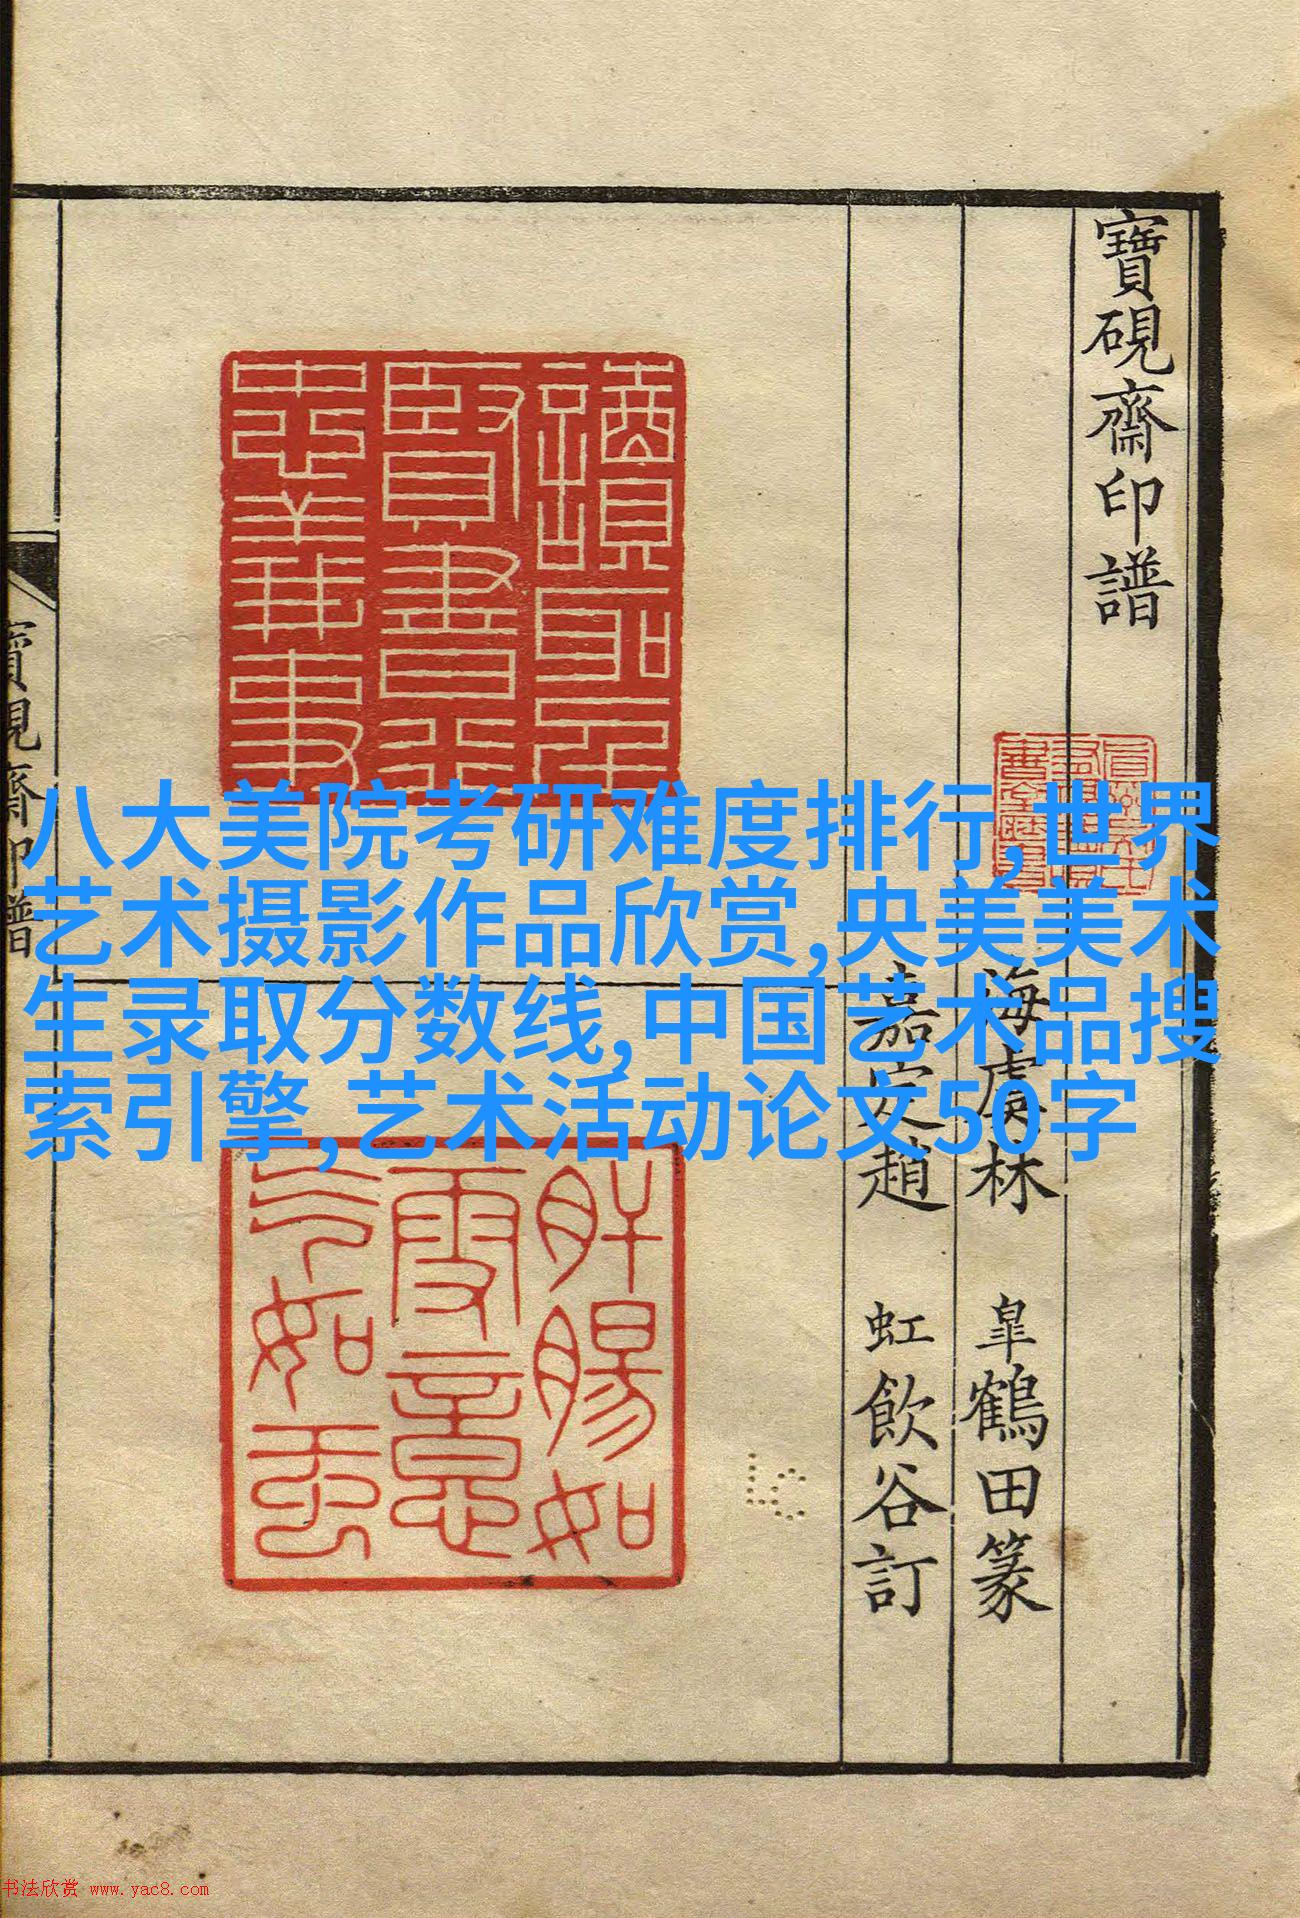 寶硯齋印譜
海虞林 皐鶴田篆
嘉定趙 虹飲谷訂
讀聖
賢書行
忠義事
肝腸如
雪意
氣如虹
寶硯齋印譜
八大美院考研难度排行,世界
艺术摄影作品欣赏,央美美术
生录取分数线,中国艺术品搜
索引擎,艺术活动论文50字
书法欣赏 www.yac8.com